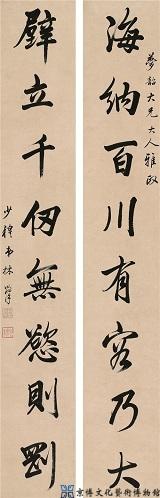 夢韶大兄大人雅政
海納百川有容乃大
壁立千仞無慾則剛
少穆弟林則徐
京博文化藝術博物館